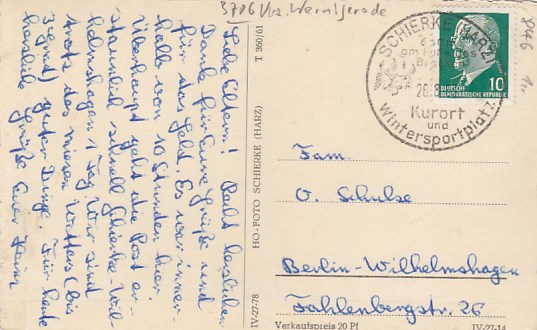 3706 Krs. Wernigerode
Liebe Eltern! Recht herzlichen
Dank für Eure Grüße und
für das Geld. Es war inner-
halb von 10 Stunden hier.
Überhaupt geht die Post er-
staunlich schnell Schierke-Wil-
helmshagen 1 Tag. Wir sind
trotz des miesen Wetters (bis
3 Grad) guter Dinge. Für heute
herzliche Grüße Euer Heim
HO-FOTO SCHIERKE (HARZ)
T 360/61
IV-27-78
SCHIERKE (HARZ)
Kurort
und
Wintersportplatz
DEUTSCHE
DEMOKRATISCHE REPUBLIK
10
Fam.
O. Schulse
Berlin-Wilhelmshagen
Fahlenbergstr. 26
Verkaufspreis 20 Pf
IV-27-14